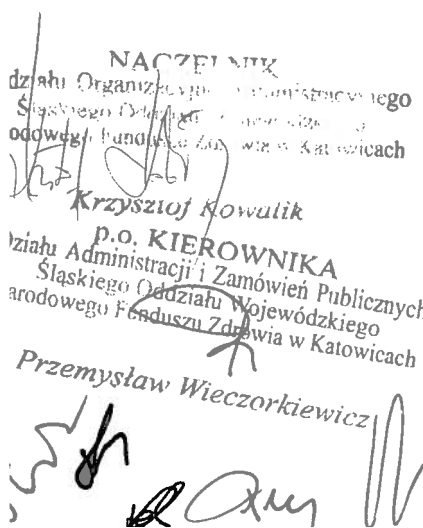 NACZELNIK
działu Organizacyjno Administracyjnego
Śląskiego
odowego Funduszu Zdrowia w Katowicach
Krzysztof Kowalik
p.o. KIEROWNIKA
Działu Administracji i Zamówień Publicznych
Śląskiego Oddziału Wojewódzkiego
arodowego Funduszu Zdrowia w Katowicach
Przemysław Wieczorkiewicz